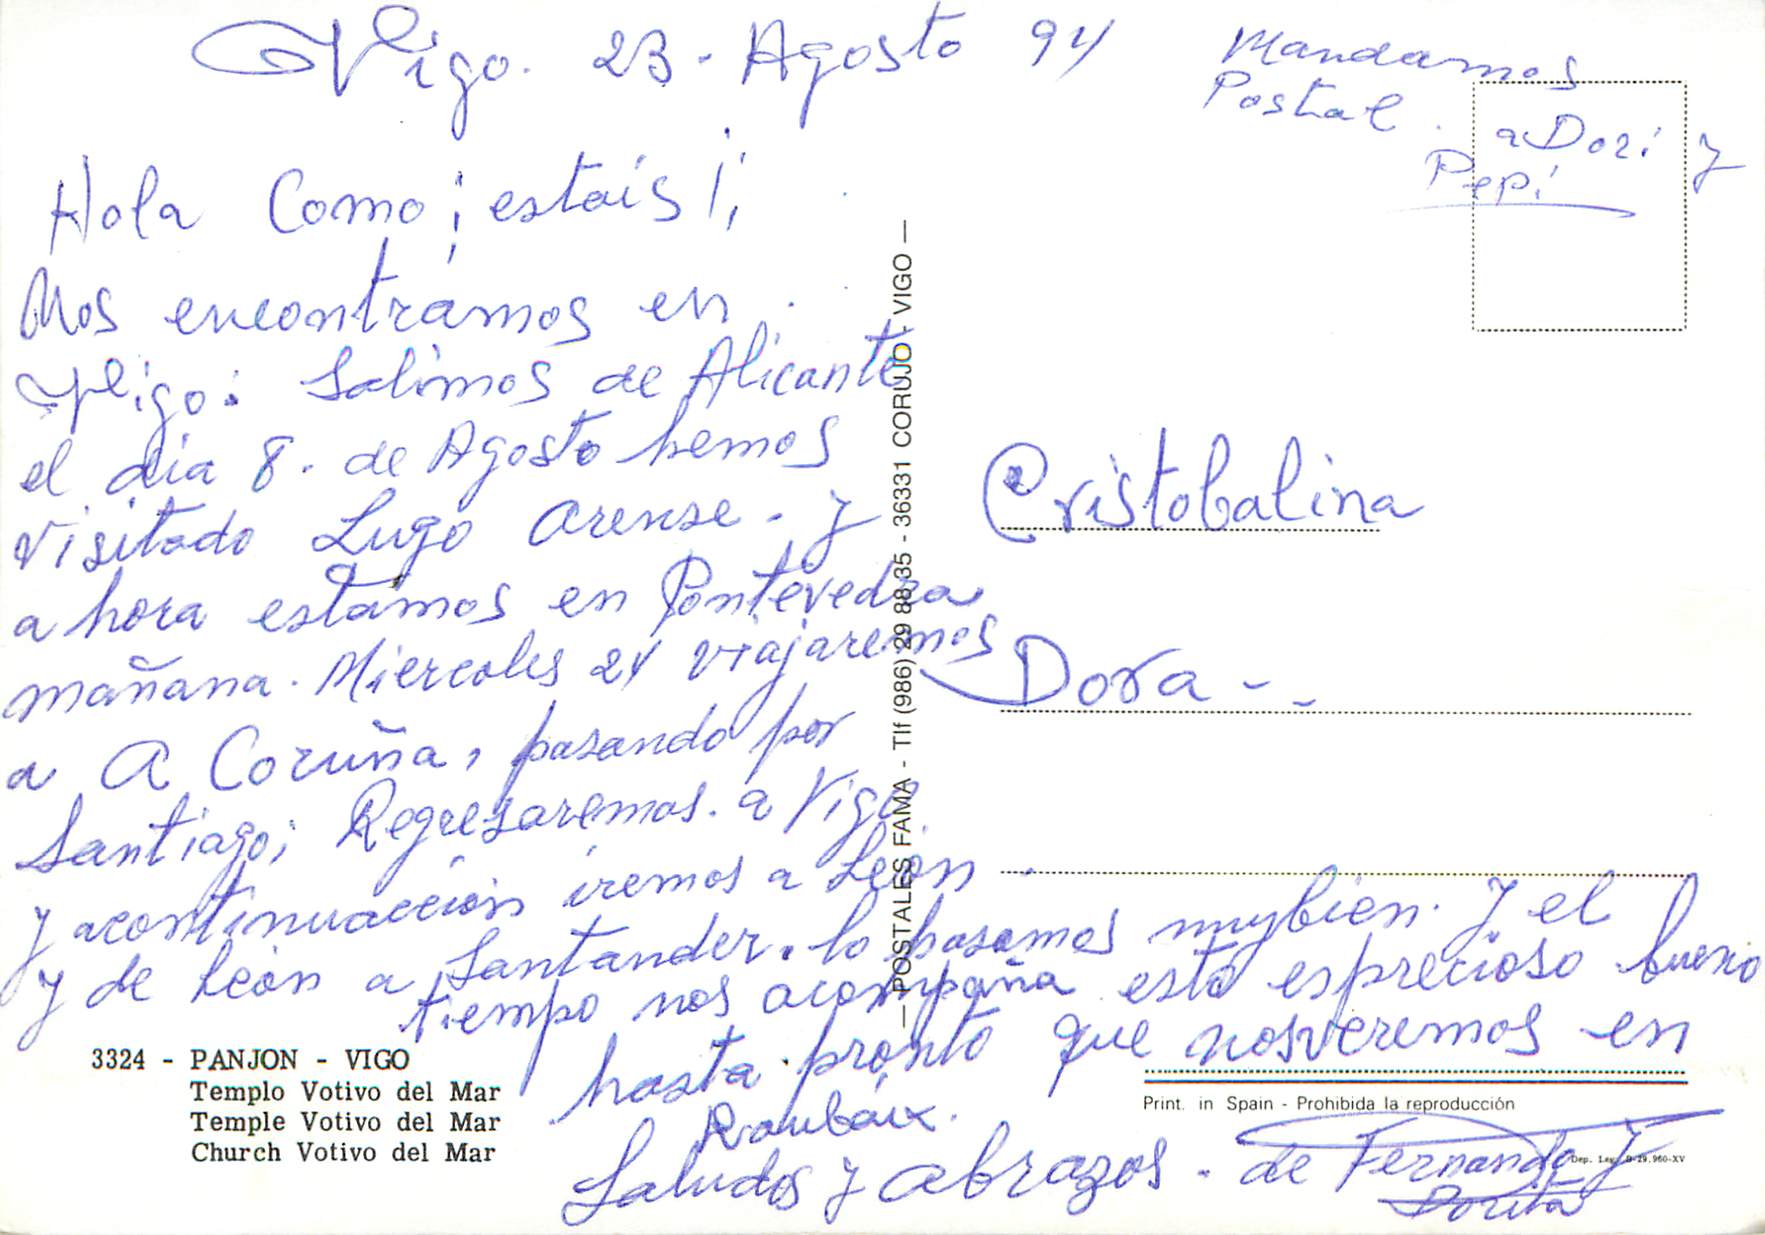 Vigo. 23 - Agosto 94
Mandamos
Postal.
a Dori y
Pepi
Hola Como ¡estais!
Nos encontramos en
Vigo. Salimos de Alicante
el dia 8. de Agosto hemos
visitado Lugo Orense. y
ahora estamos en Pontevedra
mañana. Miercoles 24 viajaremos
a A Coruña, pasando por
Santiago; Regresaremos. a Vigo.
y acontinuaccion iremos a León.
y de León a Santander. lo pasamos muybien. y el
tiempo nos acompaña esto esprecioso bueno
hasta pronto que nosveremos en
Roubaix.
Saludos y abrazos. de Fernando y
Dorita
Cristobalina
Dora --
— POSTALES FAMA - Tlf (986) 29 88 35 - 36331 CORUJO - VIGO —
3324 - PANJON - VIGO
Templo Votivo del Mar
Temple Votivo del Mar
Church Votivo del Mar
Print. in Spain - Prohibida la reproducción
Dep. Leg. B-29.960-XV